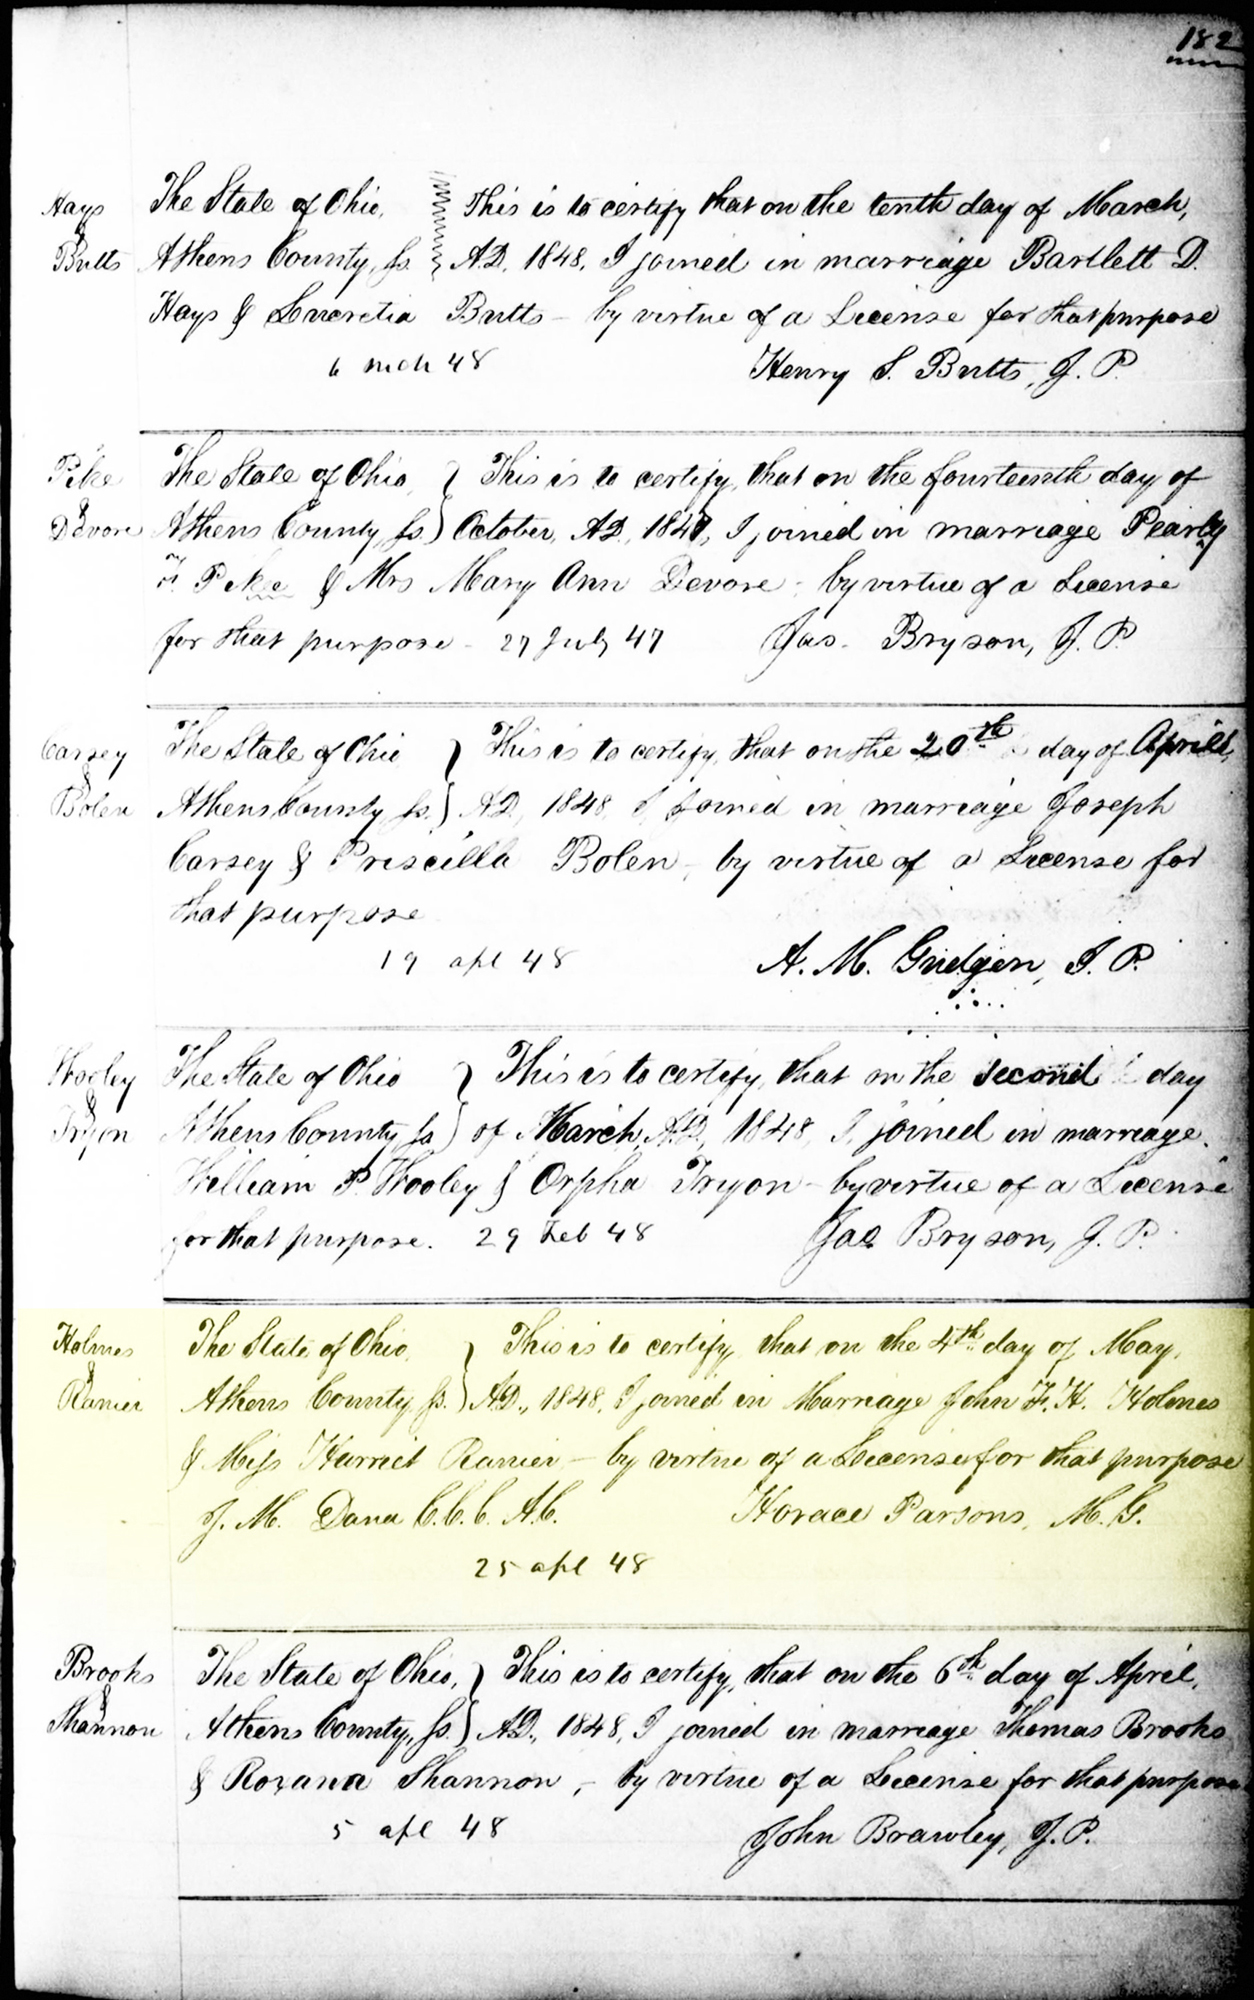 182
Hays
&
Butts
The State of Ohio, This is to certify that on the tenth day of March,
Athens County, Ss. A.D. 1848, I joined in marriage Bartlett D.
Hays & Lucretia Butts – by virtue of a License for that purpose
6 mch 48 Henry S. Butts, J. P.
Pike
&
Devore
The State of Ohio, } This is to certify, that on the fourteenth day of
Athens County, Ss. } October, A.D., 1847, I joined in marriage Pearly
F. Pike & Mrs Mary Ann Devore - by virtue of a License
for that purpose - 27 July 47 Jas. Bryson, J. P.
Carsey
&
Bolen
The State of Ohio } This is to certify, that on the 20th day of April,
Athens County, Ss. } A.D., 1848, I, joined in marriage Joseph
Carsey & Priscilla Bolen, by virtue of a License for
that purpose
19 apl 48 A. M. Gudgen, J. P.
Wooley
&
Tryon
The State of Ohio } This is to certify, that on the second day
Athens County, Ss } of March, A.D., 1848, I, joined in marriage.
William P. Wooley & Orpha Tryon – by virtue of a License
for that purpose. 29 Feb 48 Jas Bryson, J. P.
Holmes
&
Ranier
The State of Ohio, } This is to certify, that on the 4th day of May,
Athens County, Ss. } A.D., 1848, I joined in Marriage John F. H. Holmes
& Miss Harriet Ranier, – by virtue of a License for that purpose
J. M. Dana C.C.C. A.C. Horace Parsons, M. G.
25 apl 48
Brooks
&
Shannon
The State of Ohio, } This is to certify, that on the 6th day of April,
Athens County, Ss. } A.D., 1848, I joined in marriage Thomas Brooks
& Roxana Shannon, – by virtue of a License for that purpose
5 apl 48 John Brawley, J. P.